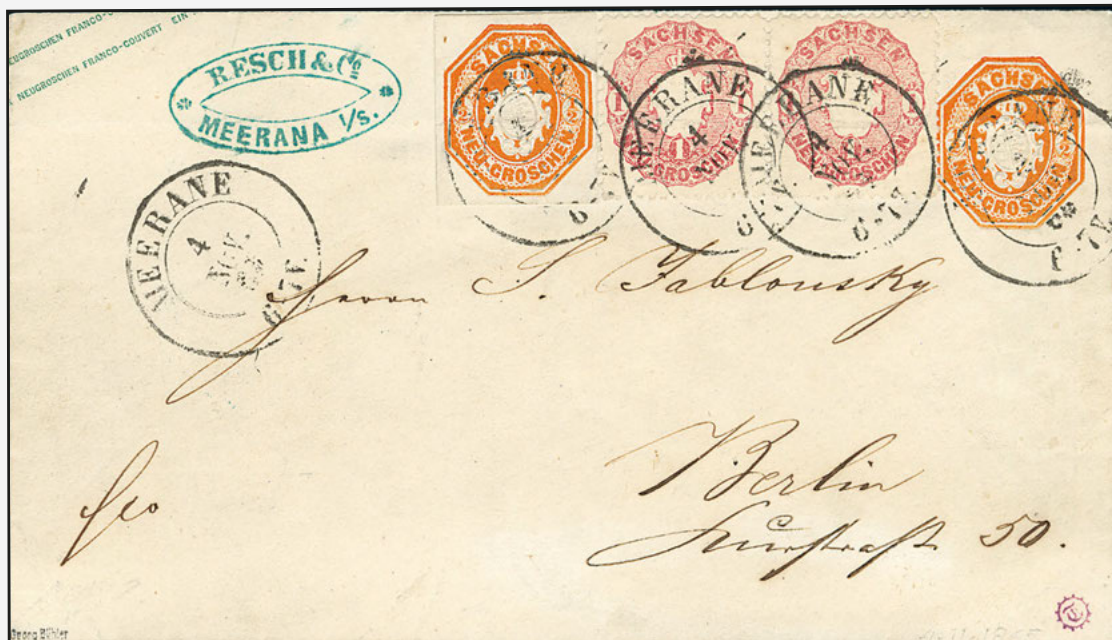 NEUGROSCHEN FRANCO-
NEUGROSCHEN FRANCO-COUVERT EIN
RESCH & Co
MEERANA I/S.
SACHSEN
EIN
NEU-GROSCHEN
SACHSEN
1 1
1
NEUGROSCHEN
SACHSEN
NEUGROSCHEN
SACHSEN
EIN
NEU-GROSCHEN
MEERANE
4
NOV.
6-7V.
MEERANE
4
6-7V.
MEERANE
4
NOV.
6-7V.
Herrn S. Jablonsky
fco
Berlin
Kurstraße 50.
Georg Bühler